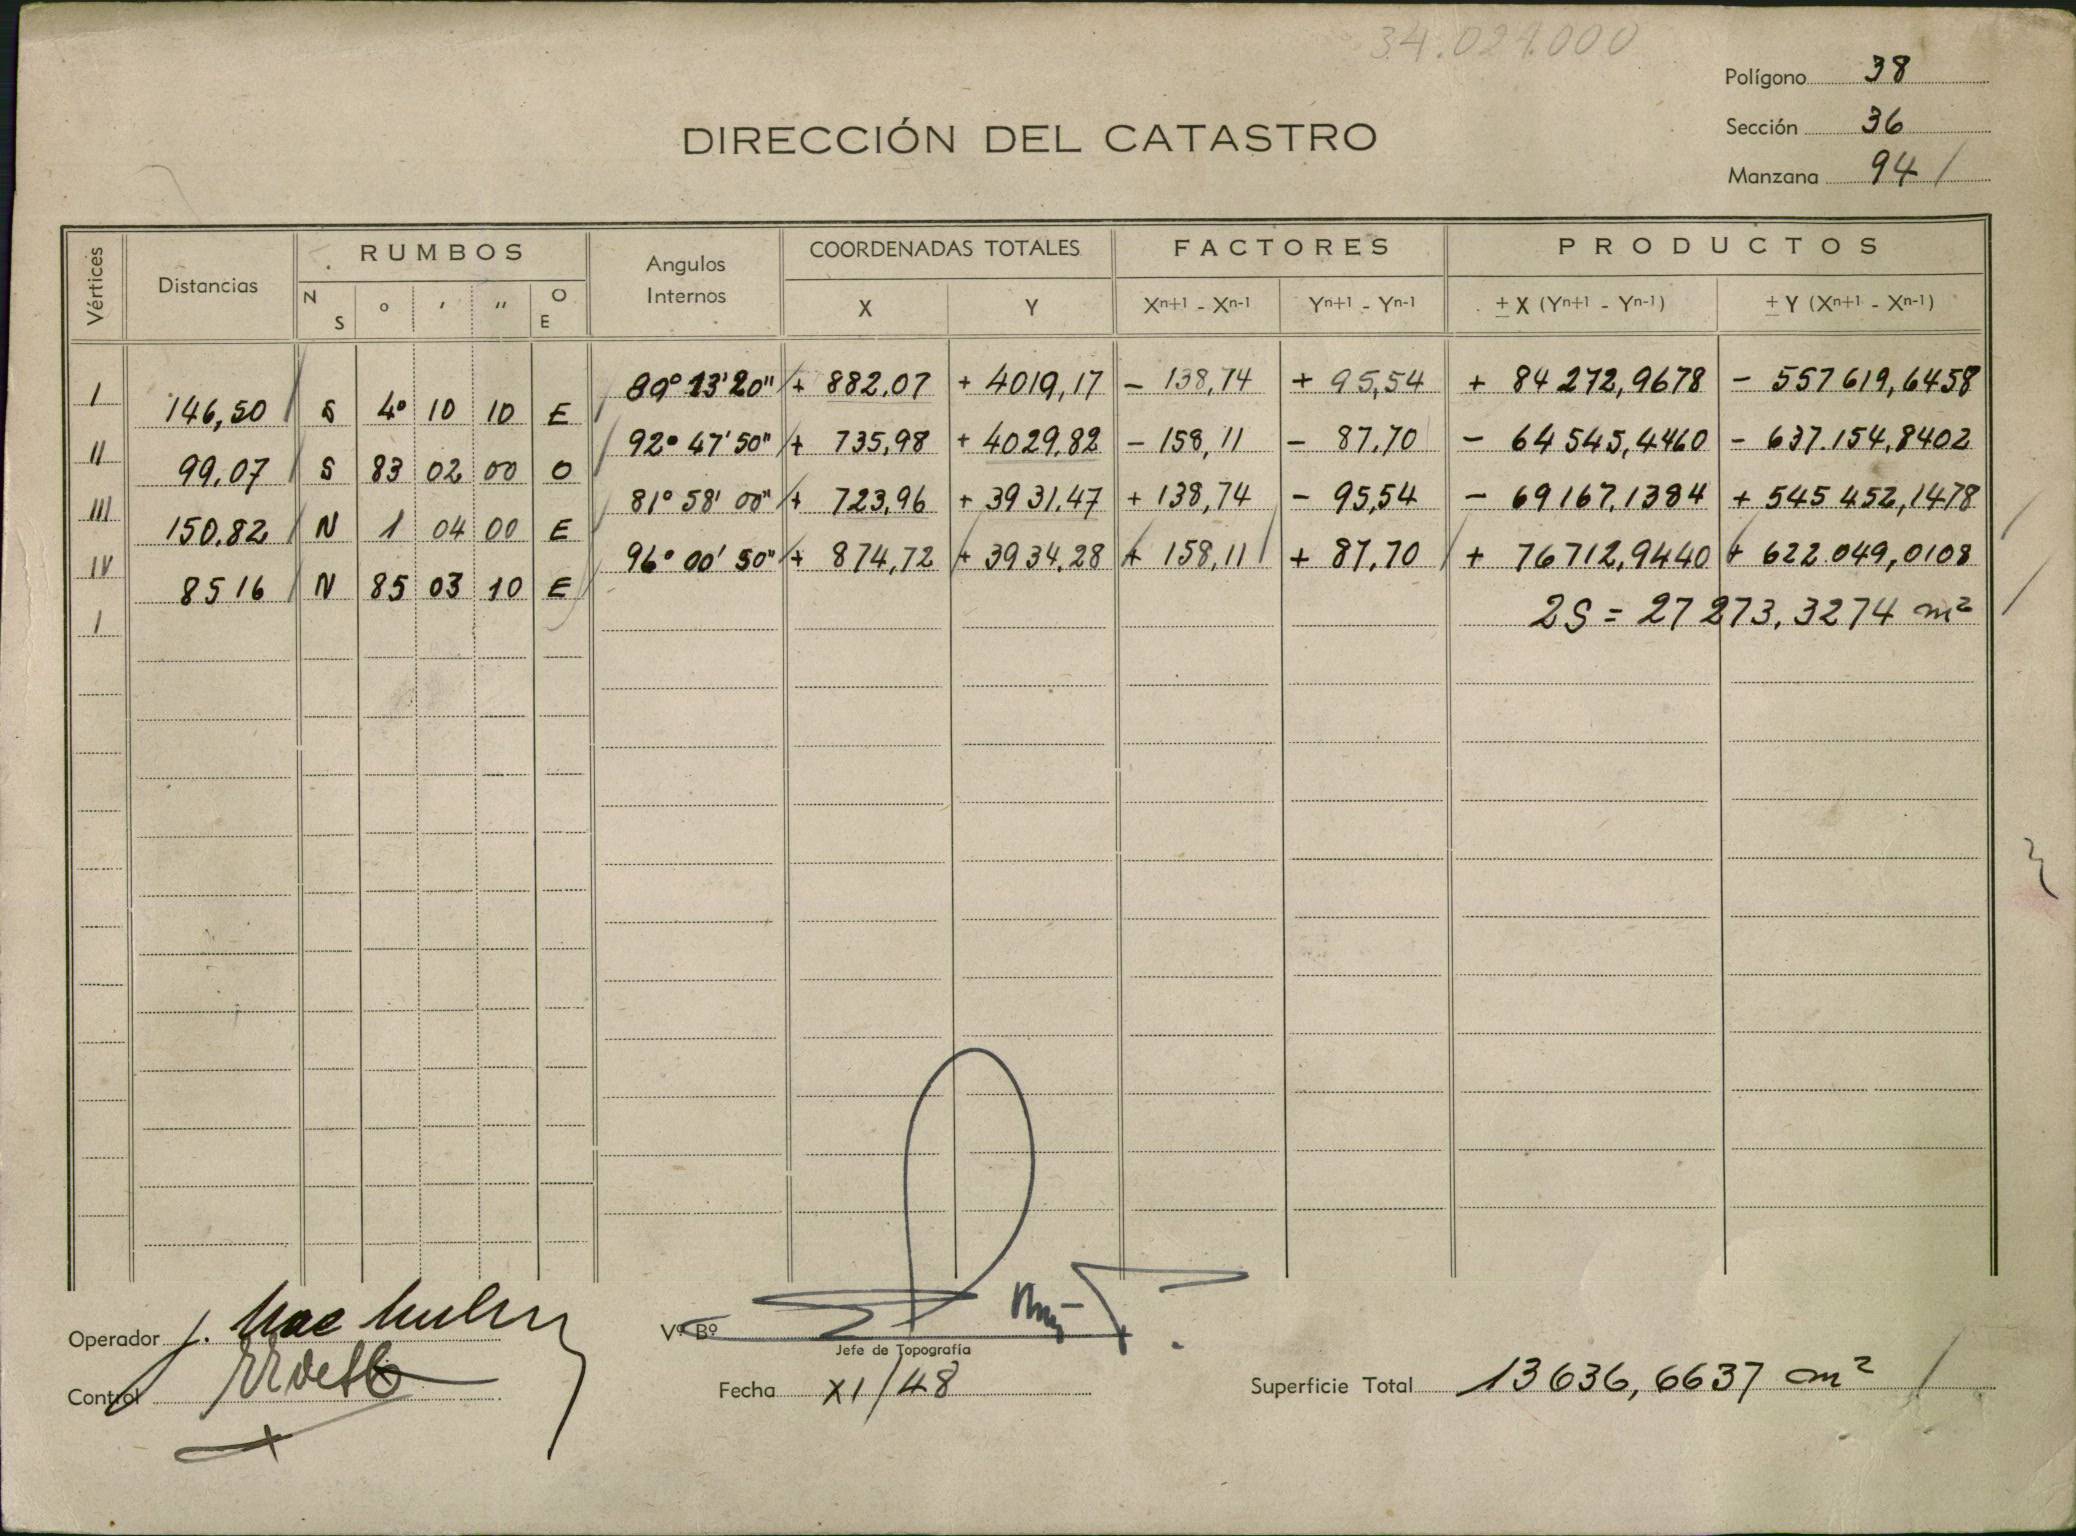 34.029.000
Polígono 38
Sección 36
Manzana 94
DIRECCIÓN DEL CATASTRO
Vértices Distancias RUMBOS Angulos Internos COORDENADAS TOTALES FACTORES PRODUCTOS
N S ° ' " O E X Y Xⁿ⁺¹ - Xⁿ⁻¹ Yⁿ⁺¹ - Yⁿ⁻¹ ± X (Yⁿ⁺¹ - Yⁿ⁻¹) ± Y (Xⁿ⁺¹ - Xⁿ⁻¹)
I 89° 13' 20" + 882,07 + 4019,17 - 138,74 + 95,54 + 84 272,9678 - 557 619,6458
146,50 S 4° 10 10 E
II 92° 47' 50" + 735,98 + 4029,82 - 158,11 - 87,70 - 64 545,4460 - 637.154,8402
99,07 S 83 02 00 O
III 81° 58' 00" + 723,96 + 3931,47 + 138,74 - 95,54 - 69167,1384 + 545 452,1478
150,82 N 1 04 00 E
IV 96° 00' 50" + 874,72 + 3934,28 + 158,11 + 87,70 + 76712,9440 + 622.049,0108
85 16 N 85 03 10 E
I 2S = 27 273,3274 m²
Operador J.
Vº Bº
Jefe de Topografía
Control
Fecha XI/48
Superficie Total 13 636,6637 m²